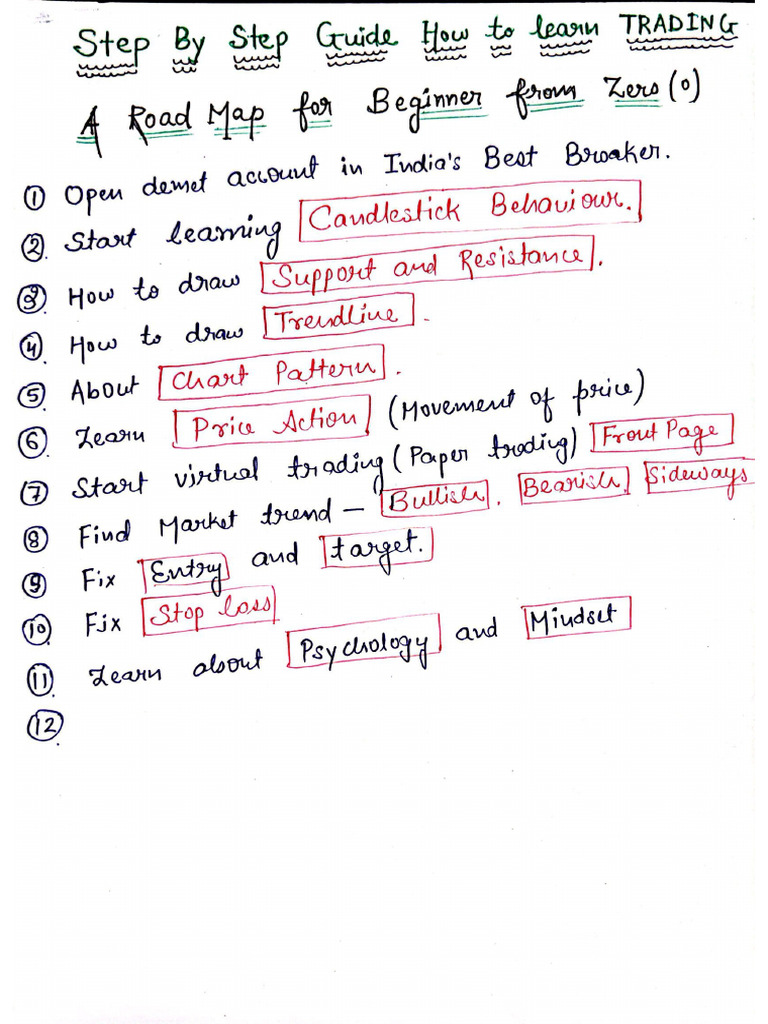 Step By Step Guide How to learn TRADING
A Road Map for Beginner from Zero (0)
1 Open demet account in India's Best Broaker.
2. Start learning Candlestick Behaviour.
3. How to draw Support and Resistance.
4. How to draw Trendline.
5. About Chart Pattern.
6. Learn Price Action (Movement of price)
7 Start virtual trading (Paper trading) Front Page
8 Find Market trend – Bullish. Bearish. Sideways
9. Fix Entry and target.
10. Fix Stop loss
11. Learn about Psychology and Mindset
12.